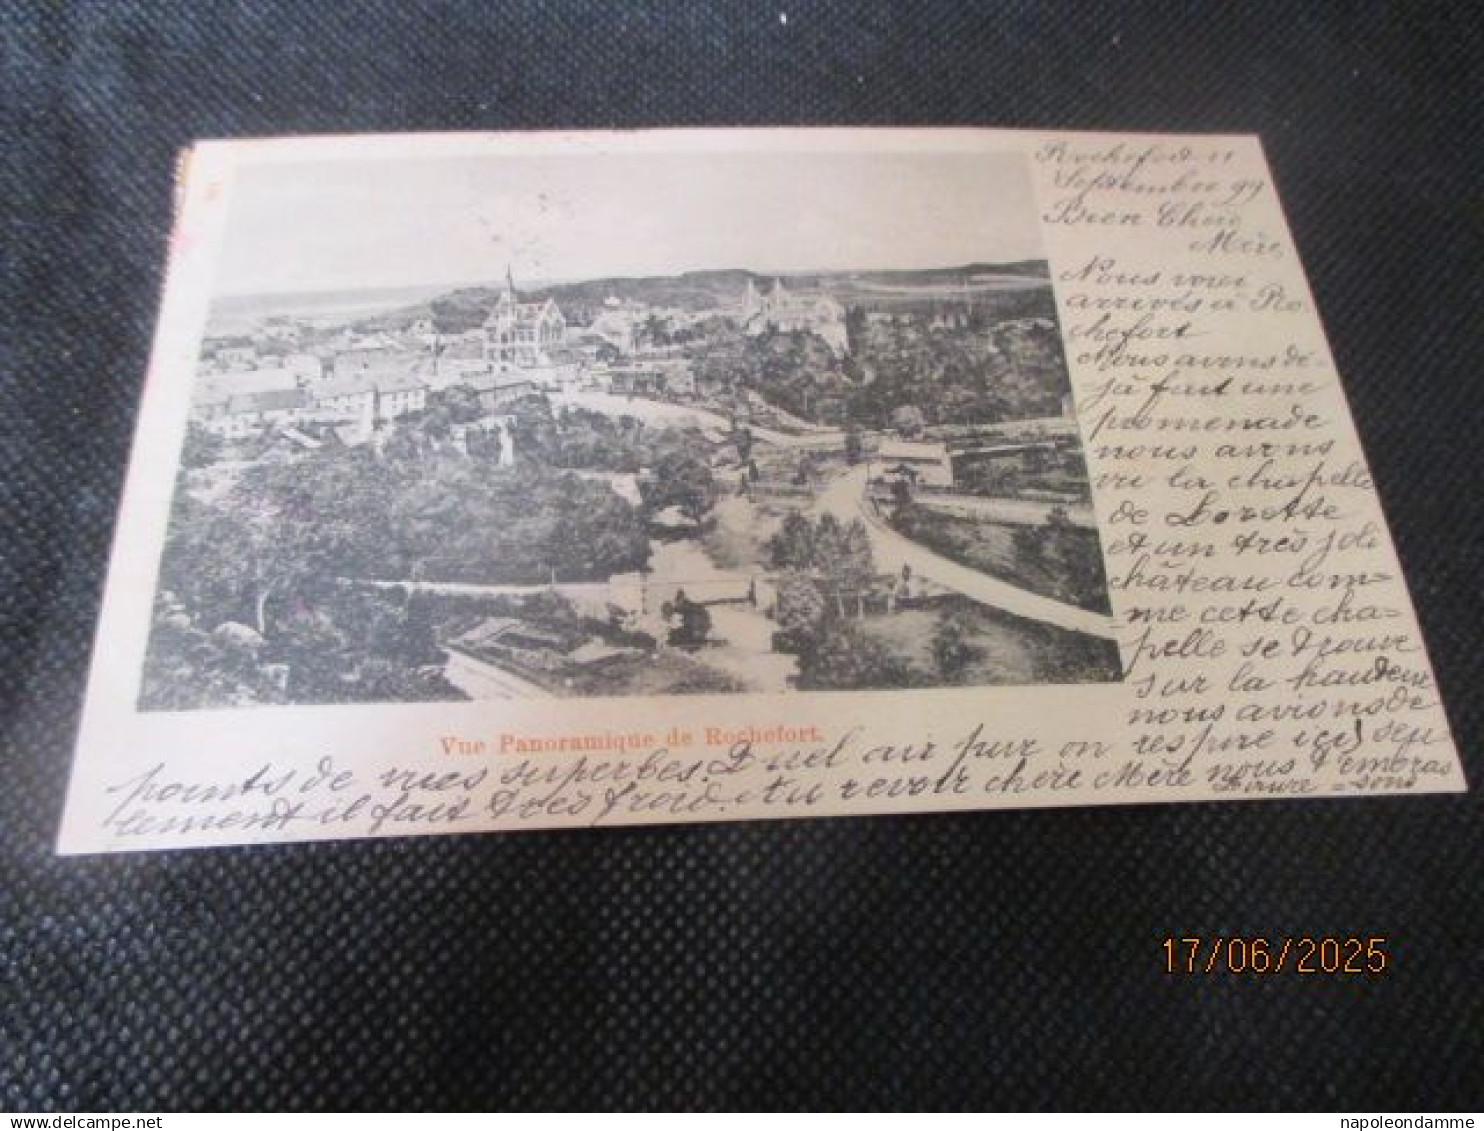 Rochefort 11
Septembre 99
Bien Chère
Mère,
Nous voici
arrivés à Ro,
chefort
Nous avons dé-
jà fait une
promenade
nous avons
vu la chapelle
de Lorette
et un très joli
château com=
me cette cha-
pelle se trouve
sur la hauteur
nous avions de
points de vues superbes. Quel air pur on respire ici, seu
lement il fait très froid. Au revoir chère Mère nous t'embras
=sons
Vue Panoramique de Rochefort.
17/06/2025
napoleondamme